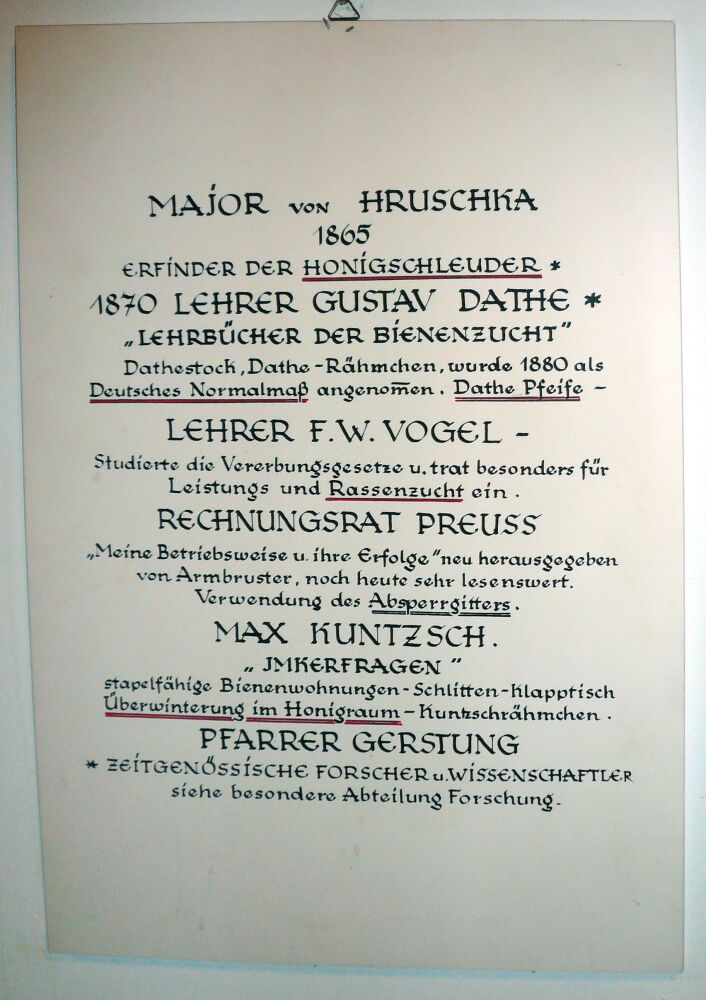 MAJOR VON HRUSCHKA
1865
ERFINDER DER HONIGSCHLEUDER *
1870 LEHRER GUSTAV DATHE *
„LEHRBÜCHER DER BIENENZUCHT"
Dathestock, Dathe-Rähmchen, wurde 1880 als
Deutsches Normalmaß angenom̅en. Dathe Pfeife –
LEHRER F.W. VOGEL –
Studierte die Vererbungsgesetze u. trat besonders für
Leistungs und Rassenzucht ein.
RECHNUNGSRAT PREUSS
„Meine Betriebsweise u. ihre Erfolge" neu herausgegeben
von Armbruster, noch heute sehr lesenswert.
Verwendung des Absperrgitters.
MAX KUNTZSCH.
„JMKERFRAGEN"
stapelfähige Bienenwohnungen-Schlitten-Klapptisch
Überwinterung im Honigraum – Kuntzschrähmchen.
PFARRER GERSTUNG
* ZEITGENÖSSISCHE FORSCHER u. WISSENSCHAFTLER
siehe besondere Abteilung Forschung.